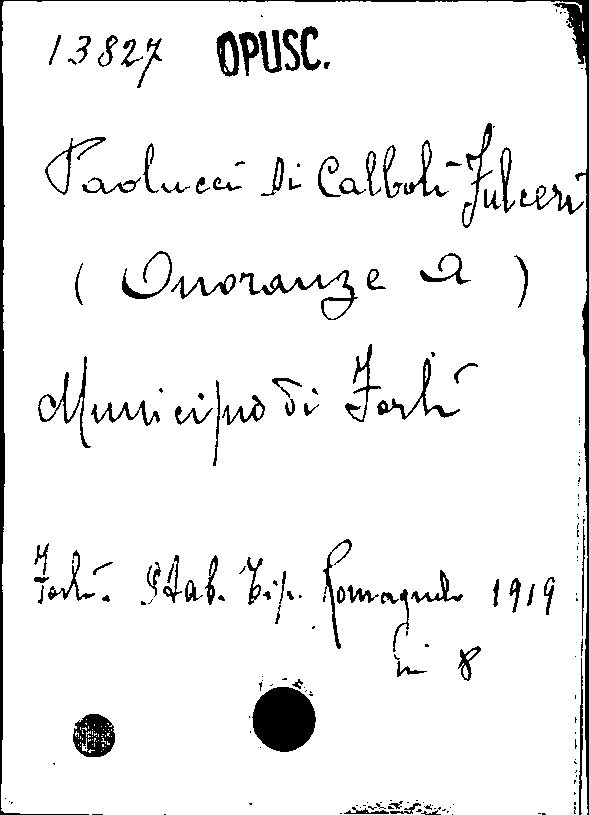 13827 OPUSC.
Paolucci Di Calboli Fulceri
( Onoranze a )
Municipio di Forlì
Forlì. Stab. Tip. Romagnolo 1919
in 8